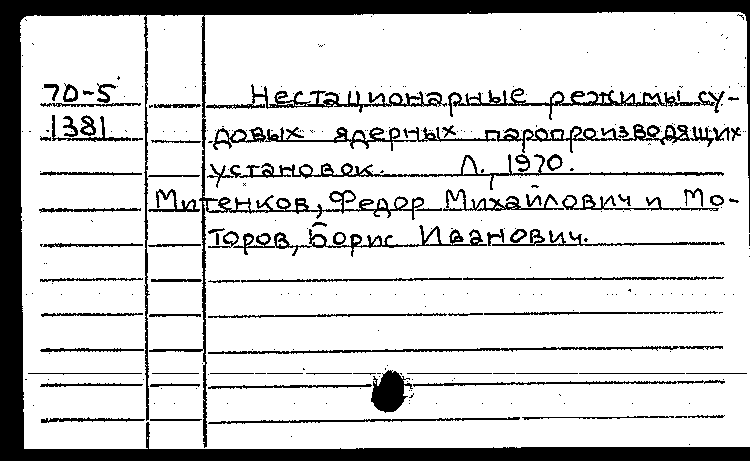 70-5
1381
Нестационарные режимы су-
довых ядерных паропроизводящих
установок. Л., 1970.
Митенков, Федор Михайлович и Мо-
торов, Борис Иванович.